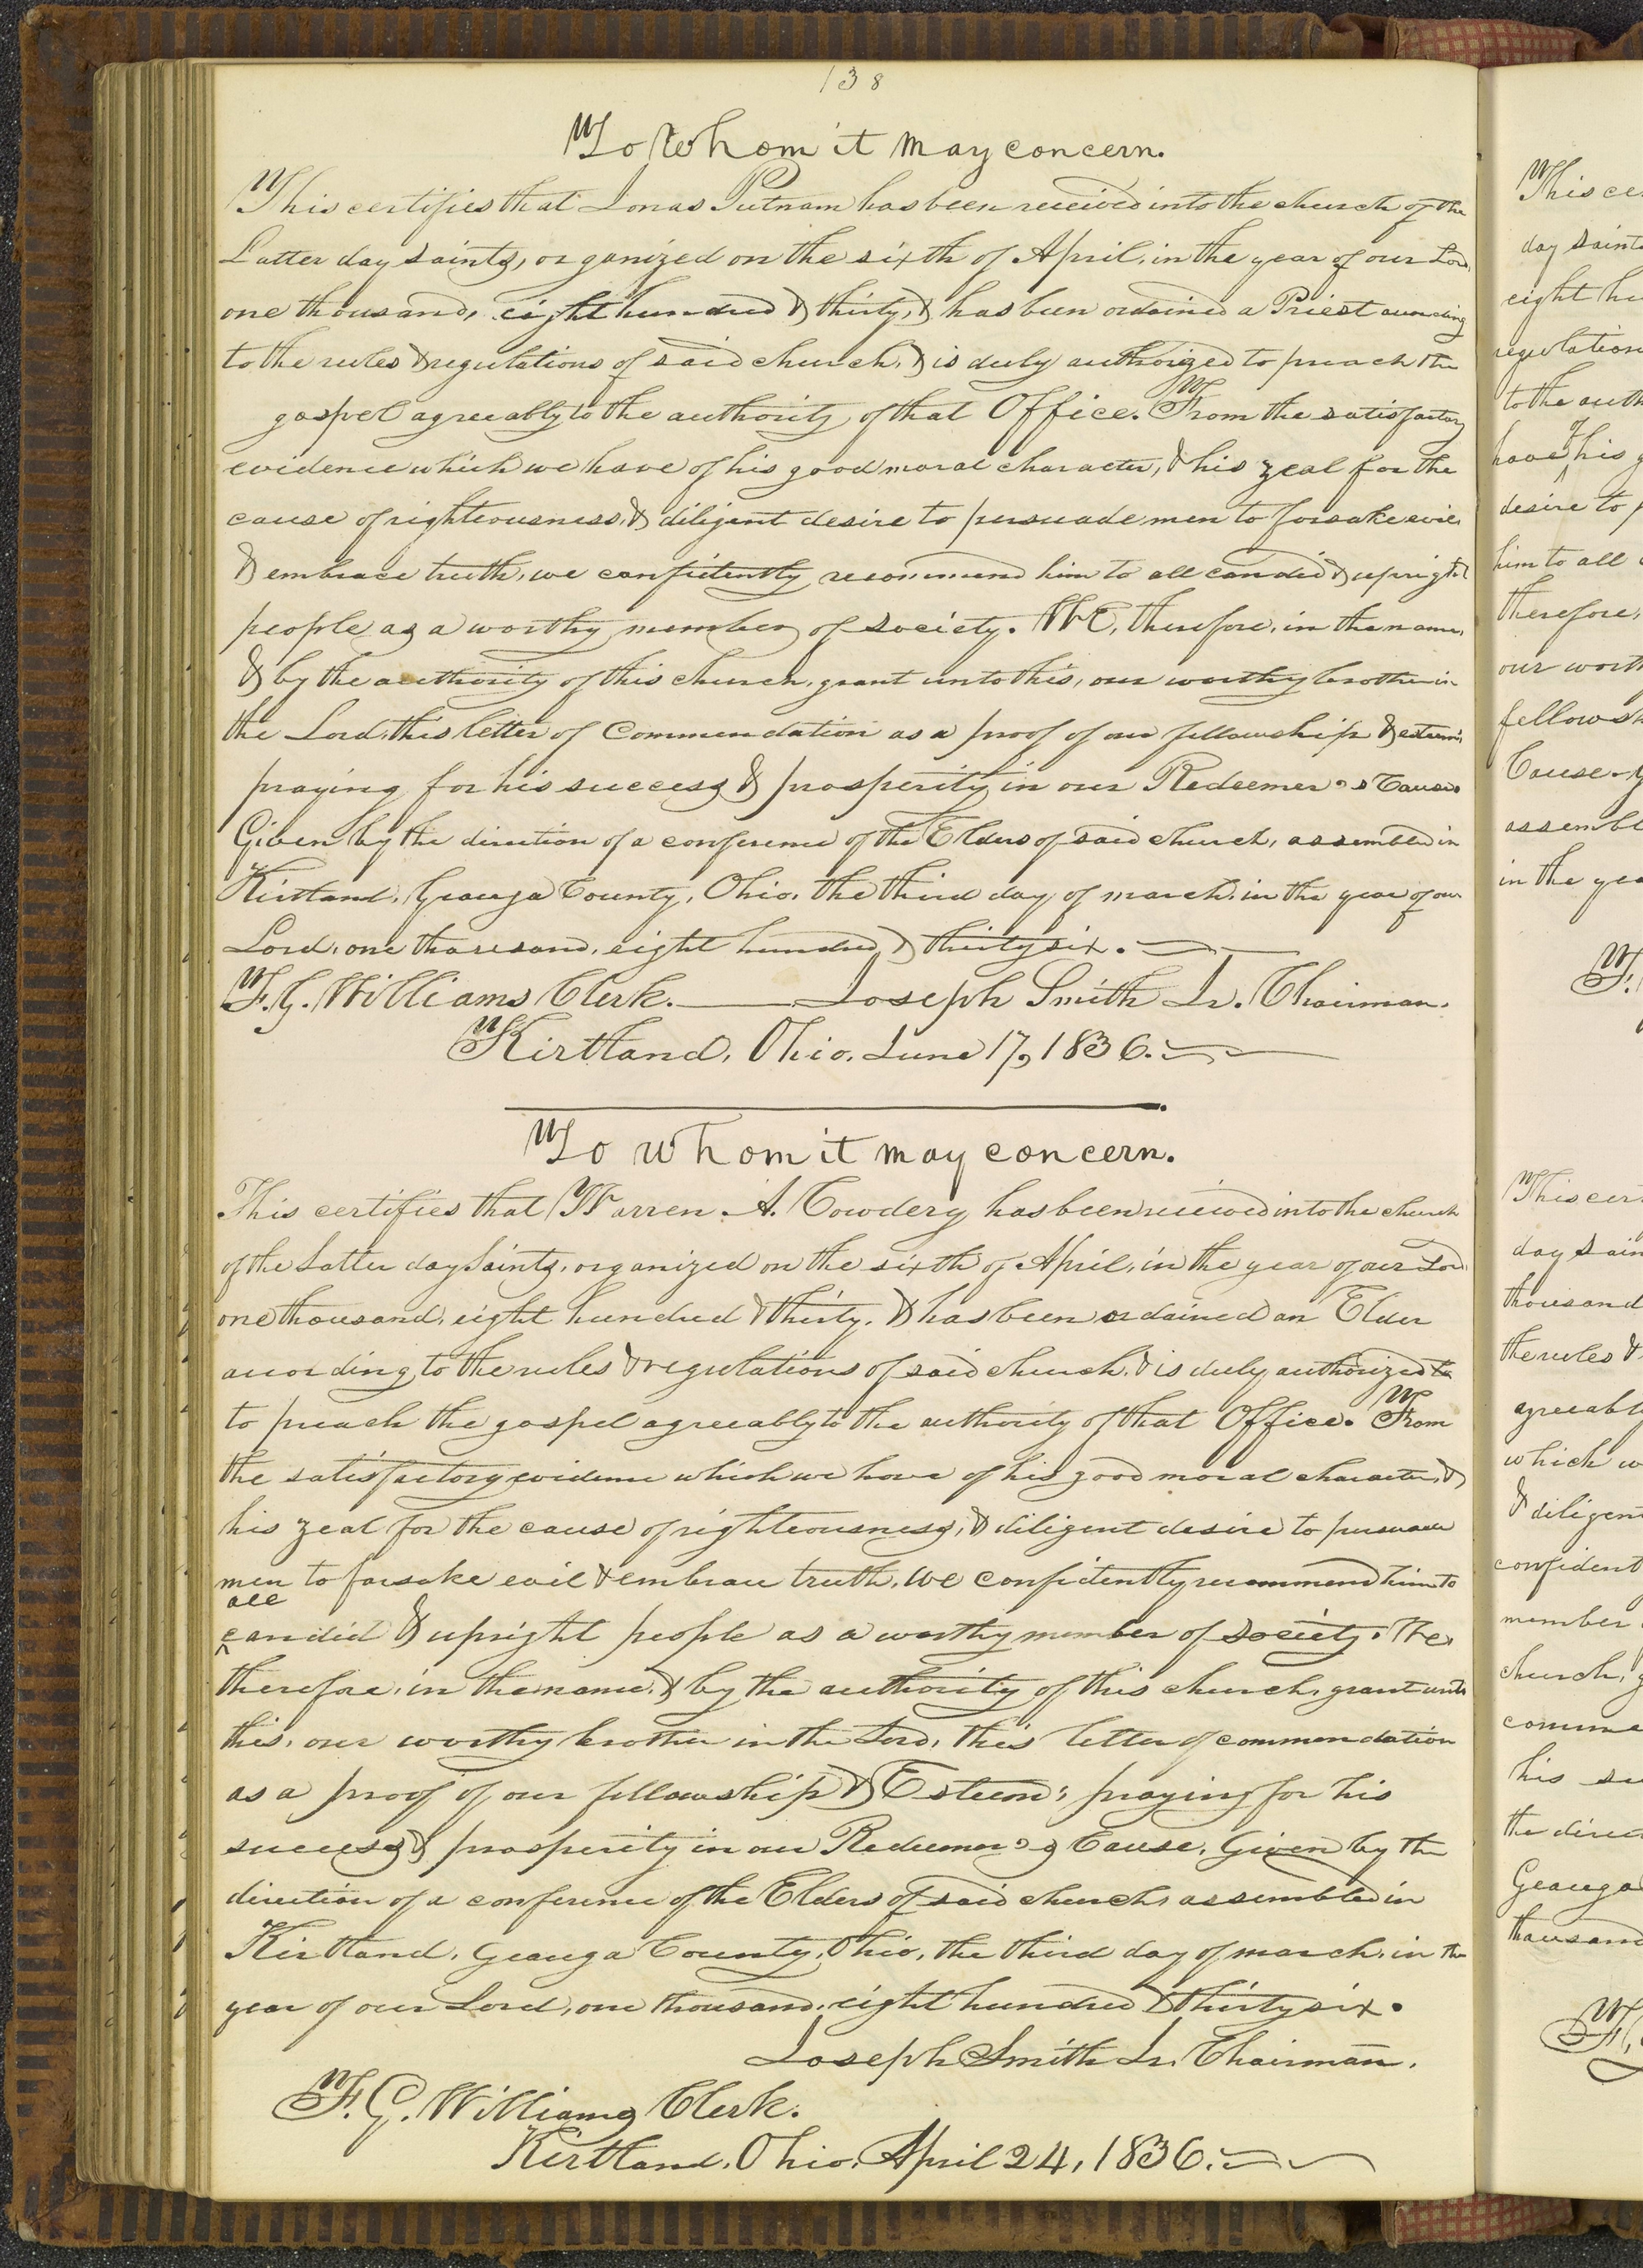 138
To Whom it may concern.
This certifies that Jonas Putnam has been received into the church of the
Latter day saints, organized on the sixth of April, in the year of our Lord
one thousand, eight hundred & thirty, & has been ordained a Priest according
to the rules & regulations of said church, & is duly authorized to preach the
gospel agreeably to the authority of that Office. From the satisfactory
evidence which we have of his good moral character, & his zeal for the
cause of righteousness, & diligent desire to persuade men to forsake evil
& embrace truth, we confidently recommend him to all candid & upright
people as a worthy member of society. We, therefore, in the name,
& by the authority of this church, grant unto this, our worthy brother in
the Lord, this letter of Commendation as a proof of our fellowship & esteem;
praying for his success & prosperity in our Redeemer's Cause.
Given by the direction of a conference of the Elders of said church, assembled in
Kirtland, Geauga County, Ohio, the third day of march, in the year of our
Lord, one thousand, eight hundred & thirty six.
F. G. Williams Clerk. Joseph Smith Jr. Chairman.
Kirtland, Ohio, June 17, 1836.
To whom it may concern.
This certifies that Warren A. Cowdery has been received into the church
of the Latter day Saints, organized on the sixth of April, in the year of our Lord
one thousand, eight hundred & thirty, & has been ordained an Elder
according to the rules & regulations of said church, & is duly authorized to
to preach the gospel agreeably to the authority of that Office. From
the satisfactory evidence which we have of his good moral character, &
his zeal for the cause of righteousness, & diligent desire to persuade
men to forsake evil & embrace truth, We confidently recommend him to
all
candid & upright people as a worthy member of society. We,
therefore, in the name, & by the authority of this church, grant unto
this, our worthy brother in the Lord, this letter of commendation
as a proof of our fellowship & Esteem; praying for his
success & prosperity in our Redeemer's Cause. Given by the
direction of a conference of the Elders of said church, assembled in
Kirtland, Geauga County, Ohio, the third day of march, in the
year of our Lord, one thousand, eight hundred & thirty six.
Joseph Smith Jr. Chairman.
F. G. Williams Clerk.
Kirtland, Ohio, April 24, 1836.
This ce
day saint
eight hu
regulation
to the auth
of
have his g
desire to p
him to all
therefore,
our wort
fellowsh
Cause. g
assembl
in the yea
F.
This cer
day Sain
thousand
the rules &
agreeabl
which w
& diligen
confident
member
church, g
comme
his su
the direc
Geauga
thousand
F.